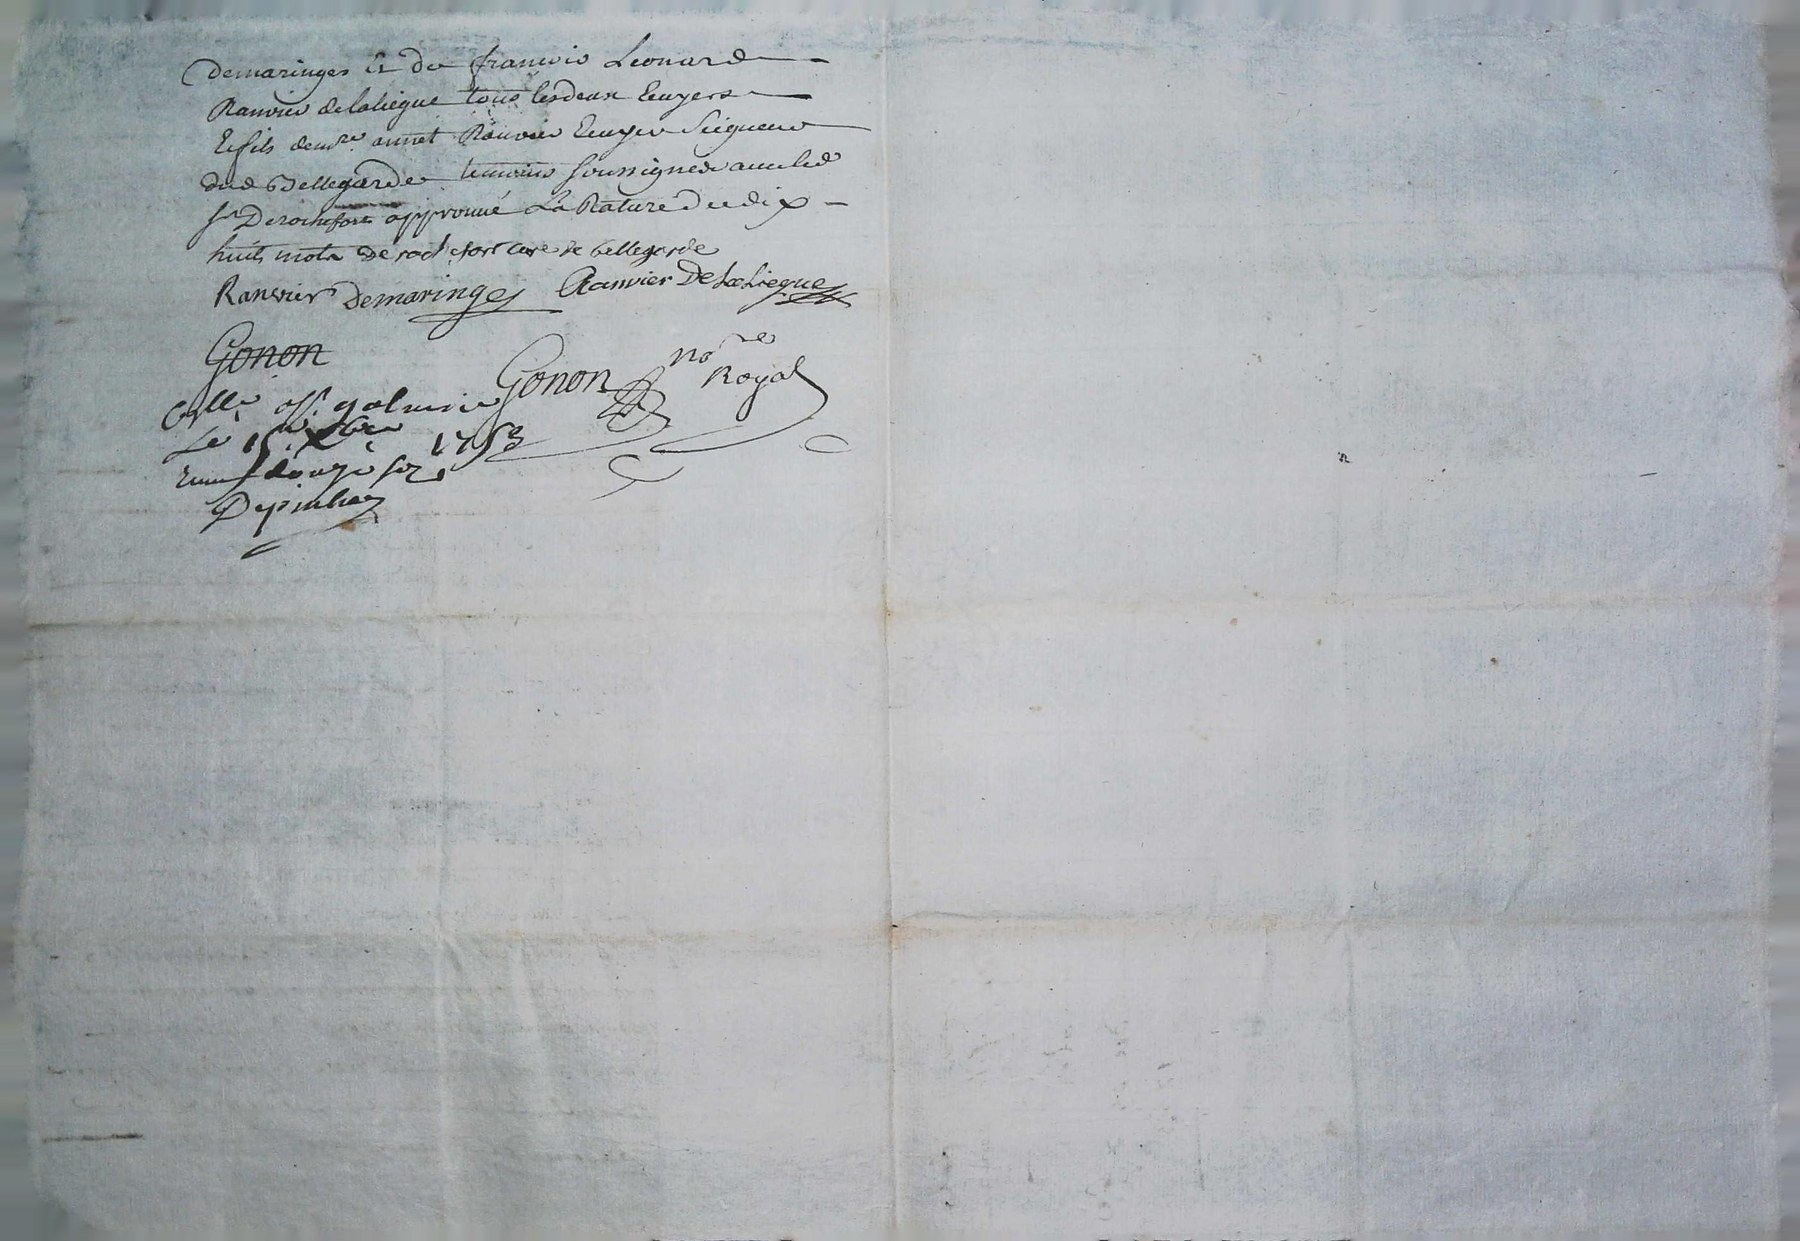 demaringes et de francois Leonard
Ranvier delaliegue tous lesdeux Ecuyers
Et fils demre annet Ranvier Ecuyer Seigneur
dud Bellegarde temoins soussignes avecled
sr Derochefort approuvé La Rature de dix
huits mots De rochefort curé de bellegarde
Ranvier Demaringes Ranvier De LaLiegue
Gonon
Collé a st galmier Gonon nore Royal
Le 15 xbre 1753
Reçu douze sols
Depinhac